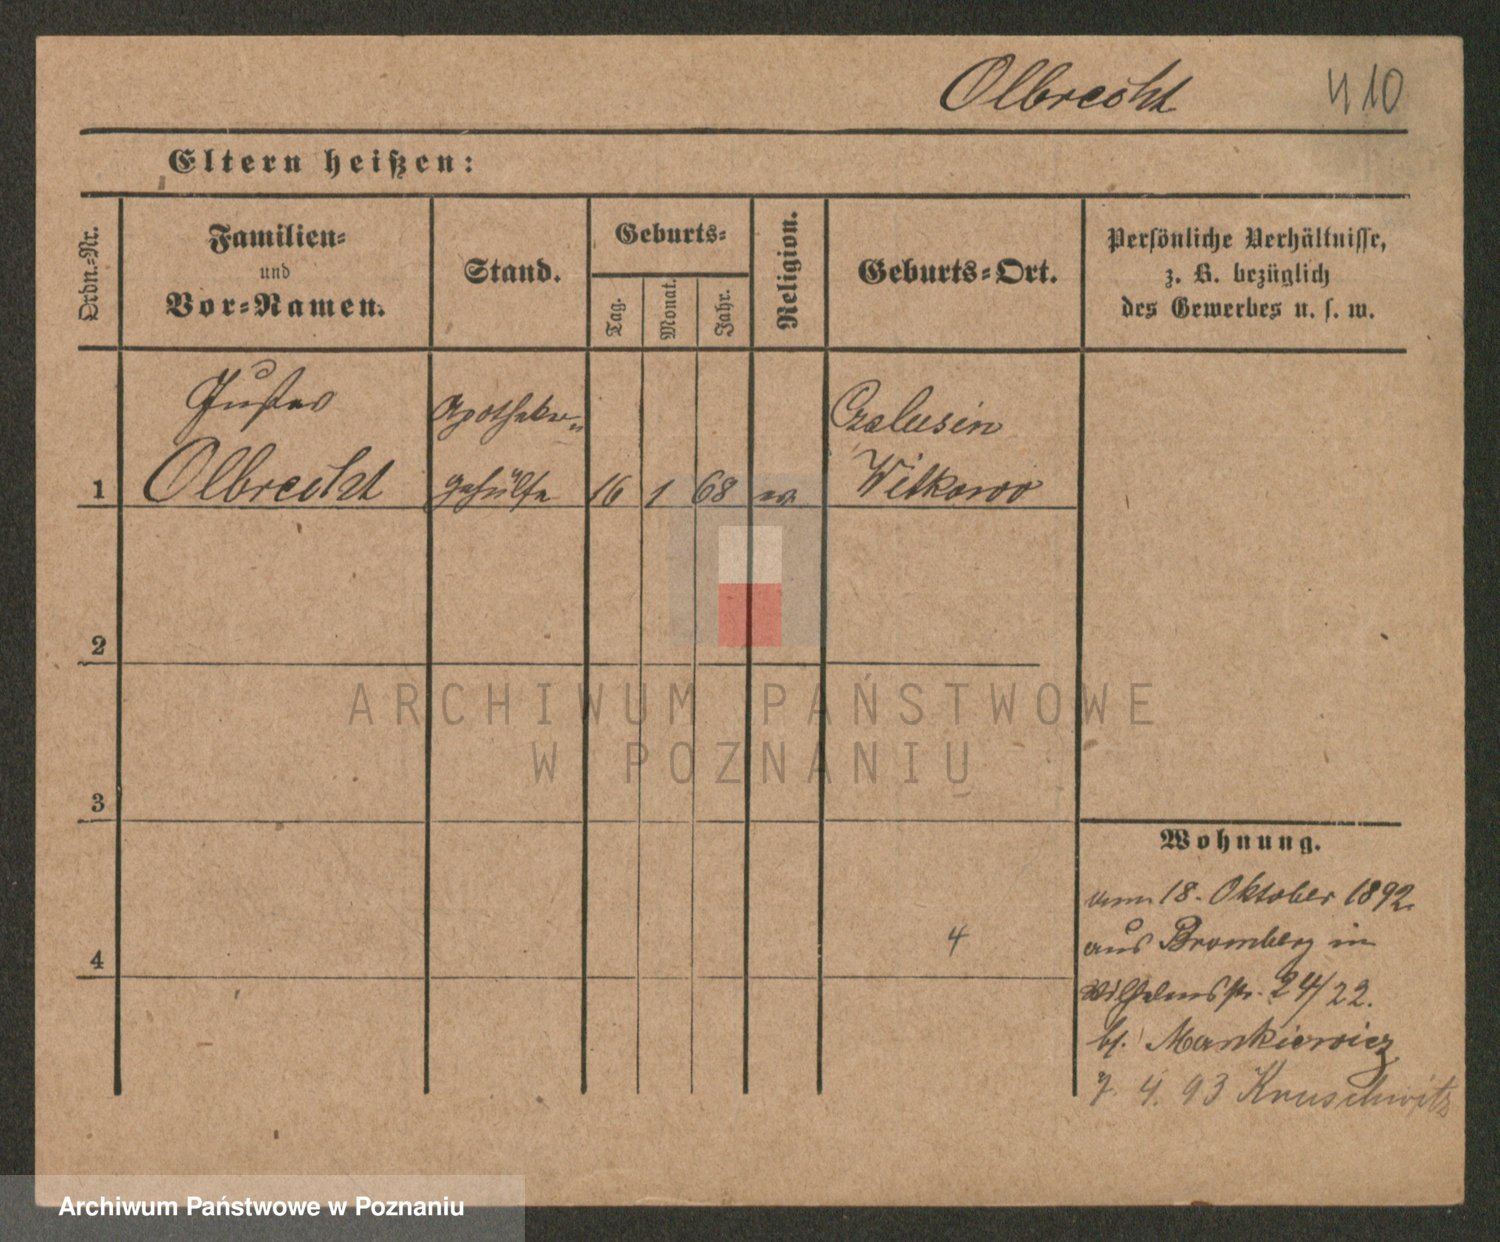 Olbrecht 410
Eltern heißen:
Ordn.-Nr.
Familien-
und
Vor-Namen.
Stand.
Geburts-
Tag.
Monat.
Jahr.
Religion.
Geburts-Ort.
Persönliche Verhältnisse,
z. B. bezüglich
des Gewerbes u. s. w.
Gustav
Olbrecht
Apotheker-
gehülfe
1
16 1 68 ev.
Czalusin
Witkowo
2
3
4
4
Wohnung.
am 18. Oktober 1892.
aus Bromberg in
Wilhelmsstr. 24/22.
bf. Mankiewicz
4. 93 Kruschwitz
ARCHIWUM PAŃSTWOWE
W POZNANIU
Archiwum Państwowe w Poznaniu